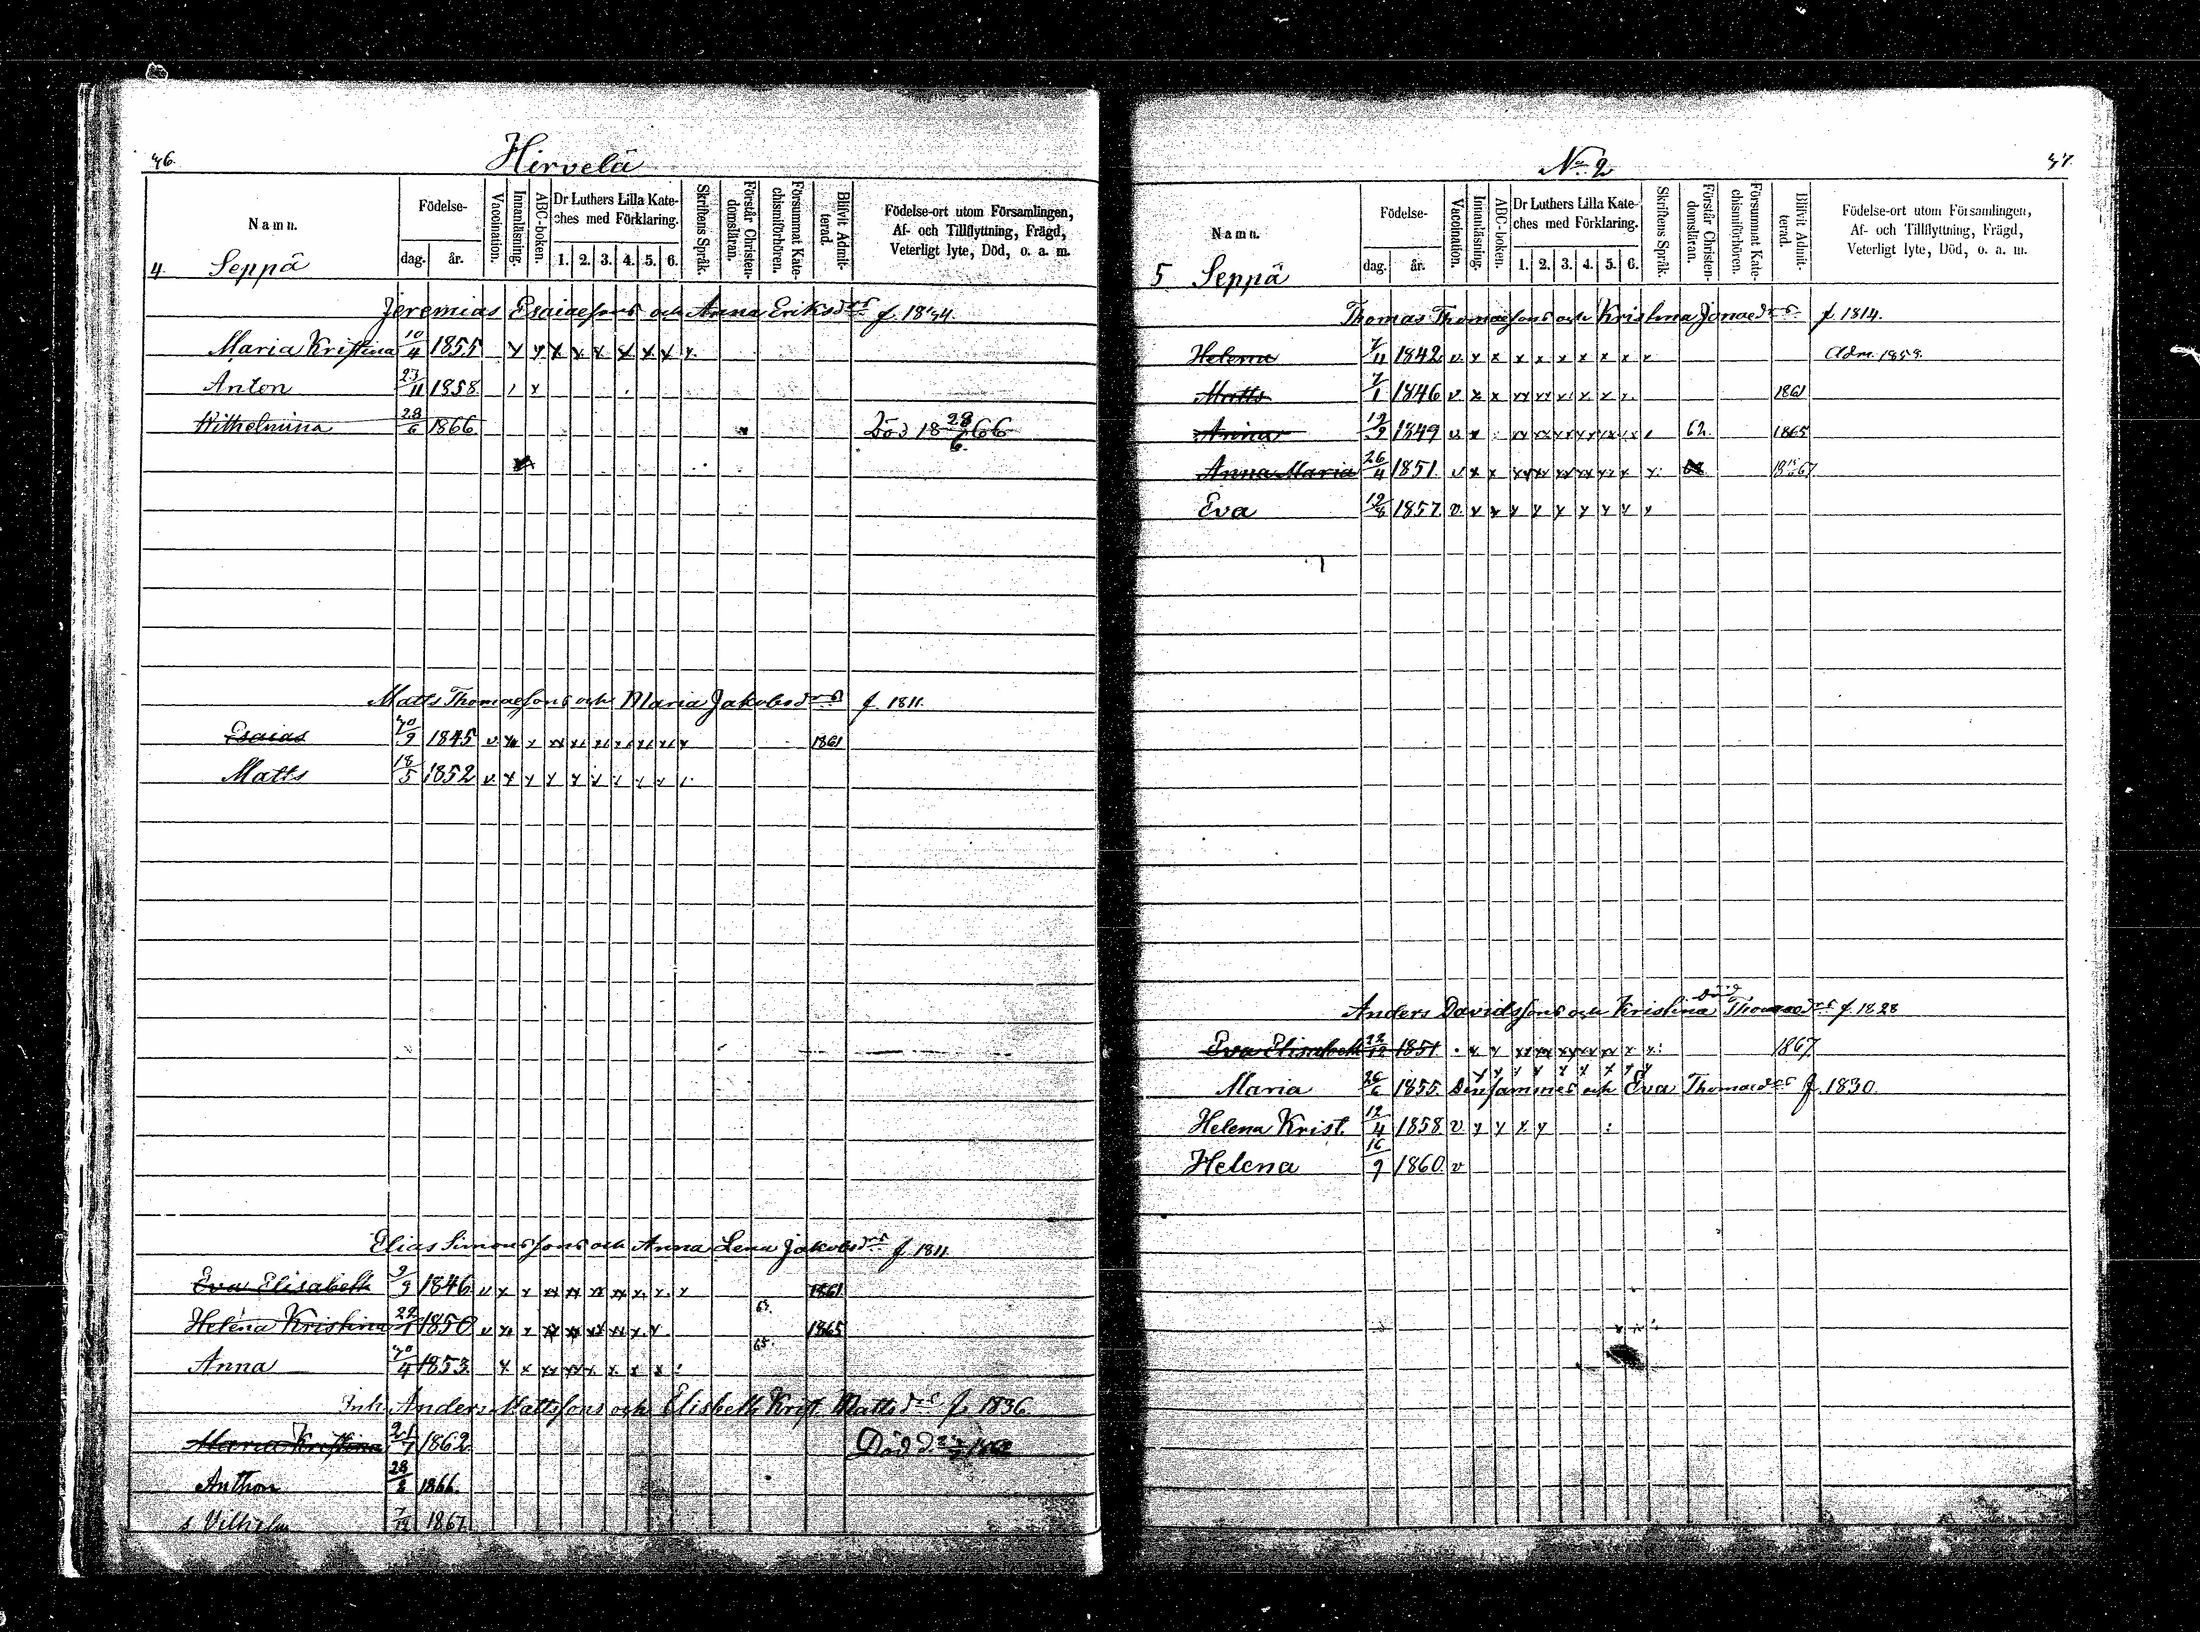 36.
Hirvelä
Namn.
Födelse-
dag.
år.
Vaccination.
Innanläsning.
ABC-boken.
Dr Luthers Lilla Kate-
ches med Förklaring.
1. 2. 3. 4. 5. 6.
Skriftens Språk.
Förstår Christen-
domsläran.
Försummat Kate-
chismiförhören.
Blifvit Admit-
terad.
Födelse-ort utom Församlingen,
Af- och Tillflyttning, Frägd,
Veterligt lyte, Död, o. a. m.
4. Seppä
Jeremias Esaiaesons och Anna Eriksdrs f. 1834.
Maria Kristina 10/4 1855 x x x x x x x x x
Anton 23/11 1858 x
Wilhelmina 28/6 1866 Död 18 28/6 66
Matts Thomaesons och Maria Jakobsdrs f. 1811.
Esaias 30/9 1845 v xx x xx xx xx xx xx xx x 1861
Matts 18/5 1852 v x x x x x x x x
Elias Simonssons och Anna Lena Jakobsdrs f. 1811.
Eva Elisabeth 9/9 1846 v x x xx xx xx xx x x x 1861
Helena Kristina 22/1 1850 v xx x xx xx xx xx x x 63. 1865
Anna 30/4 1853 x x xx xx x x x x 65.
Inh. Anders Mattssons och Elisbeth Krist. Mattsdrs f. 1836.
Maria Kristina 21/7 1862 Död d.
Anthon 28/8 1866.
s. Vilhelm 7/12 1867.
No 2
37.
Namn.
Födelse-
dag.
år.
Vaccination.
Innanläsning.
ABC-boken.
Dr Luthers Lilla Kate-
ches med Förklaring.
1. 2. 3. 4. 5. 6.
Skriftens Språk.
Förstår Christen-
domsläran.
Försummat Kate-
chismiförhören.
Blifvit Admit-
terad.
Födelse-ort utom Församlingen,
Af- och Tillflyttning, Frägd,
Veterligt lyte, Död, o. a. m.
5 Seppä
Thomas Thomaesons och Kristina Jonaedrs f. 1814.
Helena 7/11 1842 v x x x x x x x x x Adm. 1859.
Matts 7/1 1846 v x x xx xx x x x x 1861
Anna 12/9 1849 v x xx xx xx xx xx x x 62. 1865
Anna Maria 26/4 1851 v x x xx xx xx xx xx x x
Eva 12/8 1857 v x x x x x x x x x
Död
Anders Davidssons och Kristina Thomaedrs f. 1828
Eva Elisabeth 22/12 1851 x x xx xx xx xx xx x x 1867.
x x x x x x x x x
Maria 26/6 1855. Densammes och Eva Thomaedrs f. 1830.
Helena Krist. 12/4 1858 v x x x x
Helena 16/9 1860 v